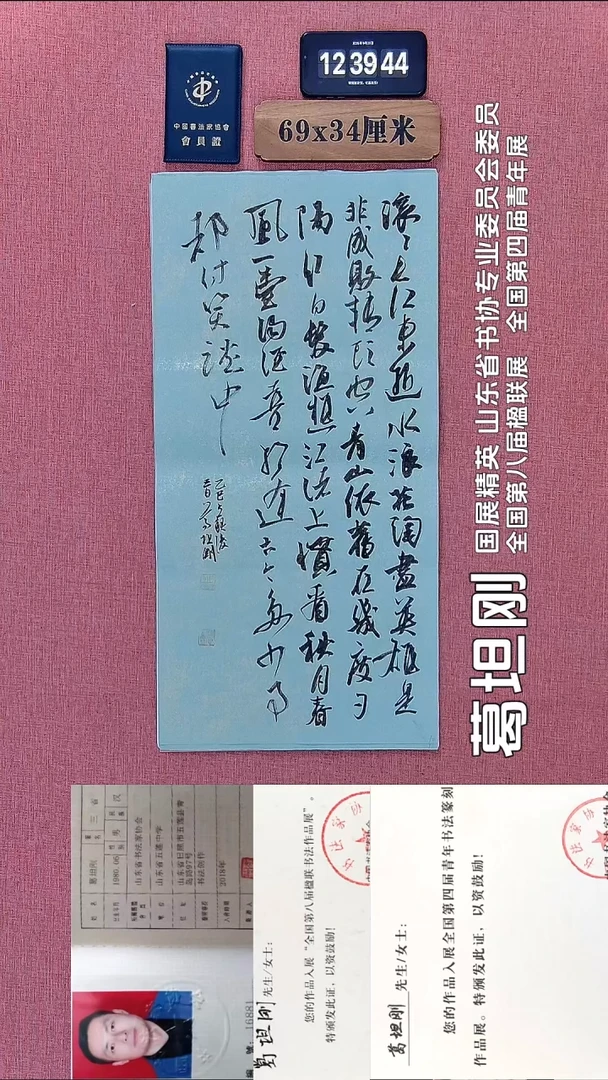 中國書法家協會
會員證
12 39 44
69x34厘米
滚〻长江東逝水浪花淘盡英雄是
非成败转头空青山依舊在幾度夕
陽红白髮漁樵江渚上慣看秋月春
風一壶濁酒喜相逢古今多少事
都付笑談中
葛坦刚
国展精英 山东省书协专业委员会委员
全国第八届楹联展 全国第四届青年展
葛坦刚
1980.06 男 汉
山东省书法家协会
山东省五莲中学
书法创作
2018年
16881
葛坦刚 先生/女士：
您的作品入展“全国第八届楹联书法作品展”，
特颁发此证，以资鼓励！
葛坦刚 先生/女士：
您的作品入展全国第四届青年书法篆刻
作品展。特颁发此证，以资鼓励！